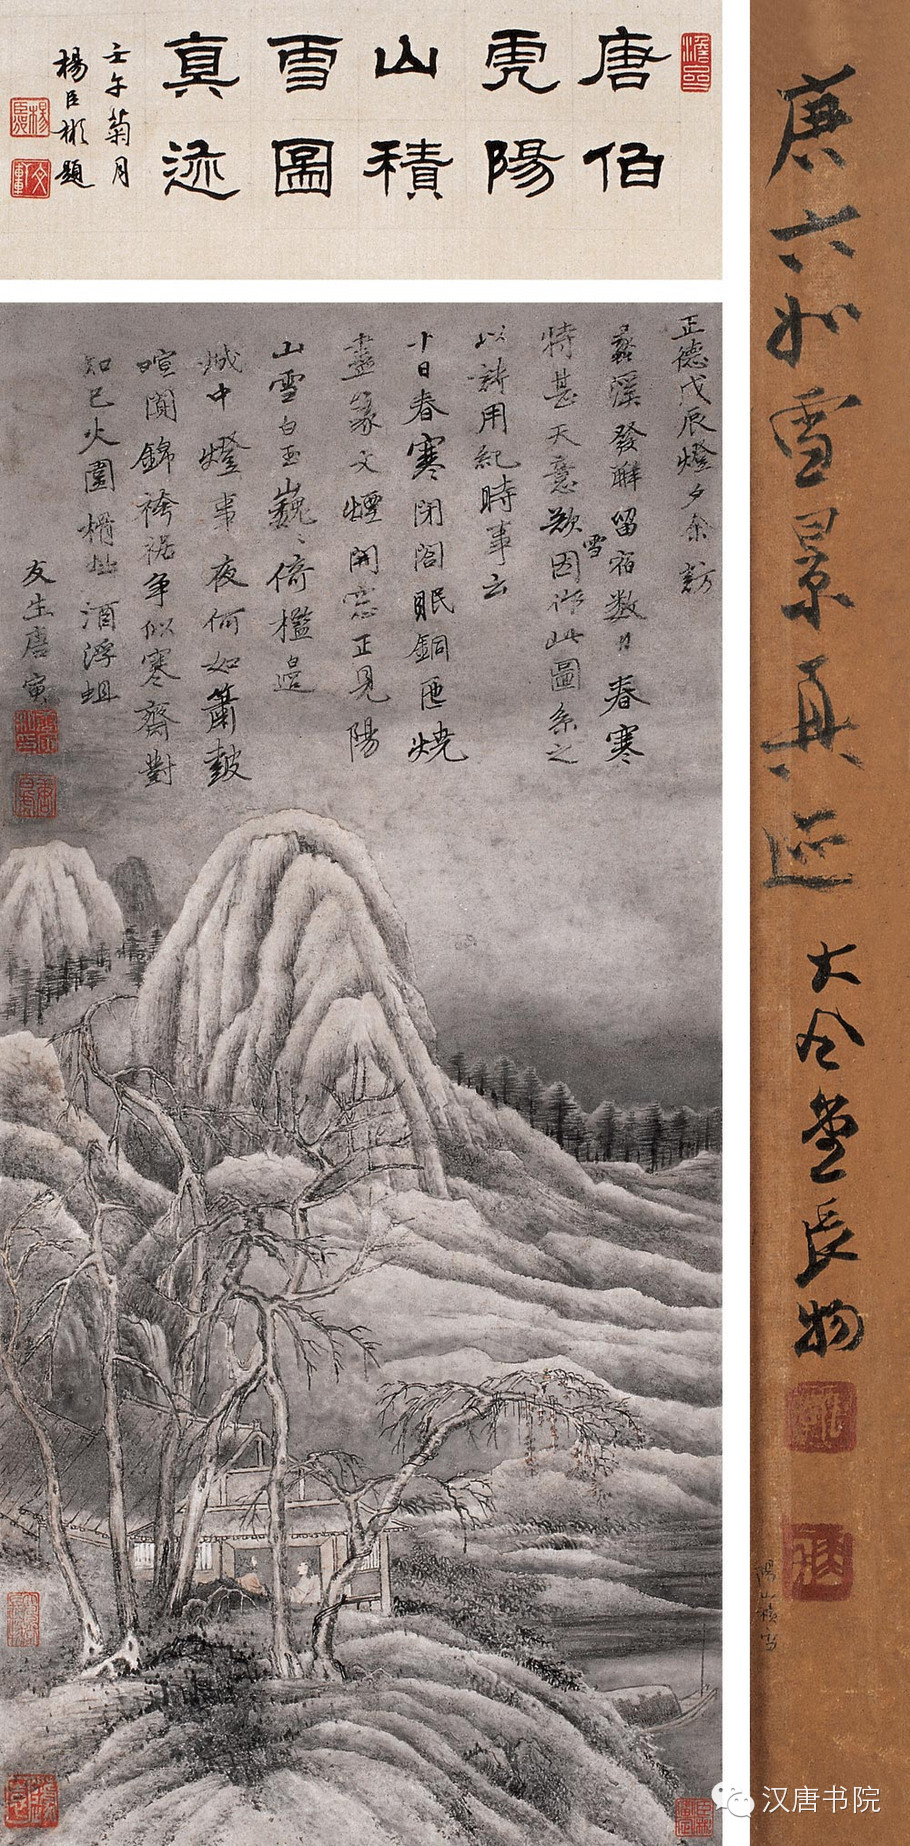 唐伯
虎陽
山積
雪圖
真迹
壬午菊月
楊臣彬題
正德戊辰燈夕余訪
蠡溪發解留宿数日春寒
特甚天意欲雪因作此圖系之
以詩用紀時事云
十日春寒閉閤眠銅匜燒
盡篆文煙開窓正見陽
山雪白玉巍〻倚檻邊
城中燈事夜何如簫鼓
喧闐錦袴裾争似寒齋對
知己火圍榾柮酒浮蛆
友生唐寅
唐六如雪景真迹
大風堂長物
陽山積雪
汉唐书院